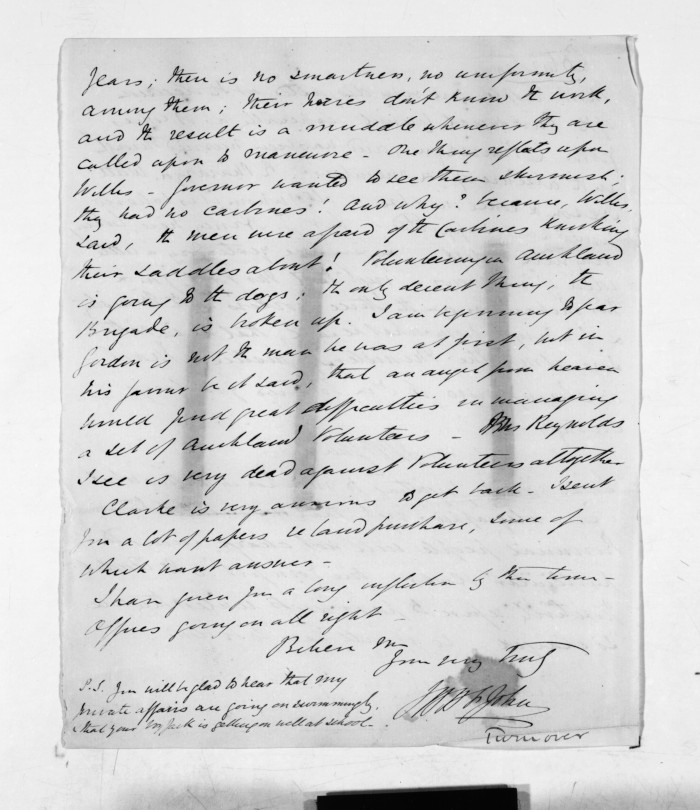 years; there is no smartness, no uniformity,
among them; their horses don't know the work,
and the result is a muddle whenever they are
called upon to maneuvre - One thing reflects upon
Willis - Governor wanted to see them skirmish;
they had no carbines! And why? because, Willis,
said, the men were afraid of the Carbines knocking
their saddles about! Volunteering in Auckland
is going to the dogs; the only decent thing, the
Brigade, is broken up. I am beginning to fear
Gordon is not the man he was at first, but in
his favour be it said, that an angel from heaven
would find great difficulties in managing
a set of Auckland Volunteers - Reynolds
I see is very dead against Volunteers altogether
Clarke is very anxious to get back - I sent
you a lot of papers re land purchase, some of
which want answer -
I have given you a long infliction by this time -
Offices going on all right -
Believe me
Yours very truly
P.S. You will be glad to hear that my
private affairs are going on swimmingly.
that your boy Jack is getting on well at school -
JHH St John
Turn over